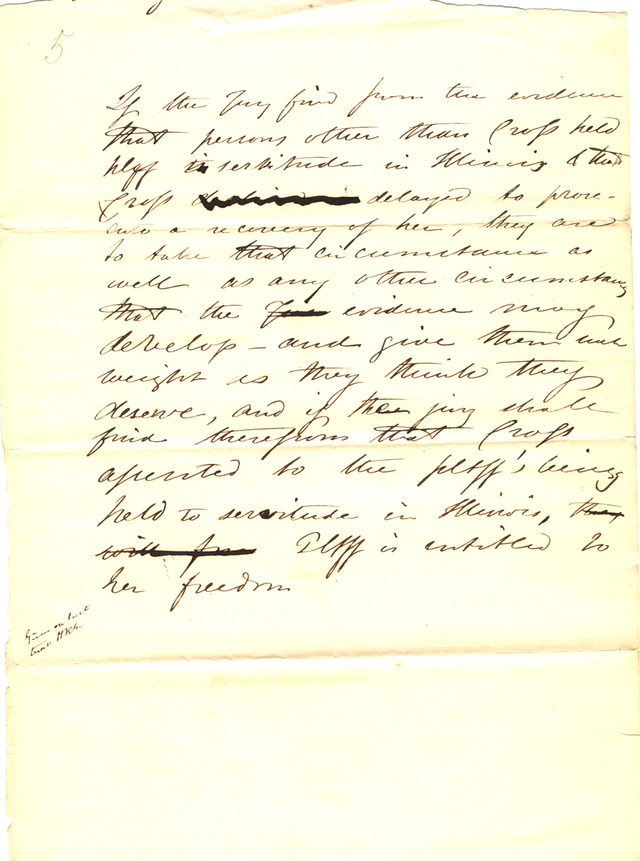 5
If the Jury find from the evidence
that persons other than Cross held
plff in servitude in Illinois & that
Cross delayed to prose-
cute a recovery of her, they are
to take that circumstance as
well as any other circumstance
that the evidence may
develop - and give them such
weight as they think they
deserve, and if the jury shall
find therefrom that Cross
assented to the pltff's being
held to servitude in Illinois, they
will find Plff is entitled to
her freedom
Given on last